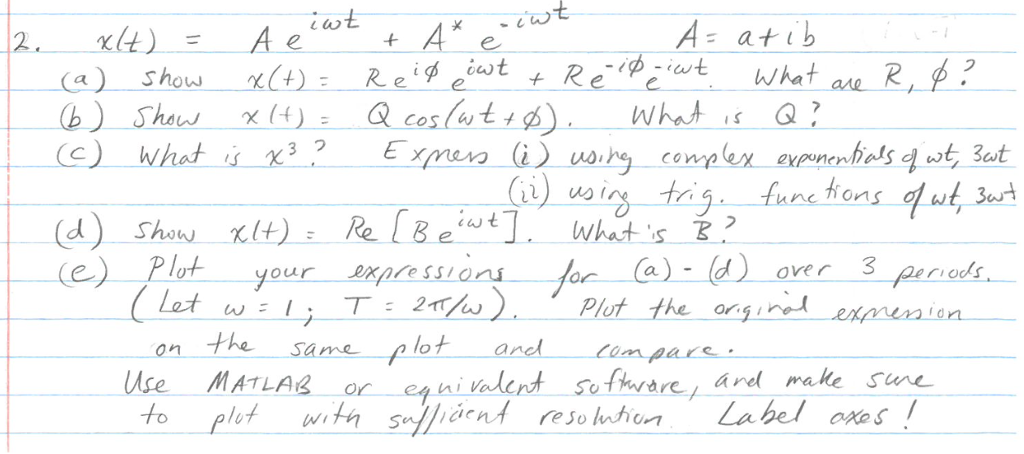 2. x(t) = A e^{iωt} + A* e^{-iωt} A = a + ib
(a) Show x(t) = R e^{iφ} e^{iωt} + R e^{-iφ} e^{-iωt}. What are R, φ?
(b) Show x(t) = Q cos(ωt + φ). What is Q?
(c) What is x³? Express (i) using complex exponentials of ωt, 3ωt
(ii) using trig. functions of ωt, 3ωt
(d) Show x(t) = Re [B e^{iωt}]. What is B?
(e) Plot your expressions for (a) - (d) over 3 periods.
(Let ω = 1; T = 2π/ω). Plot the original expression
on the same plot and compare.
Use MATLAB or equivalent software, and make sure
to plot with sufficient resolution. Label axes!